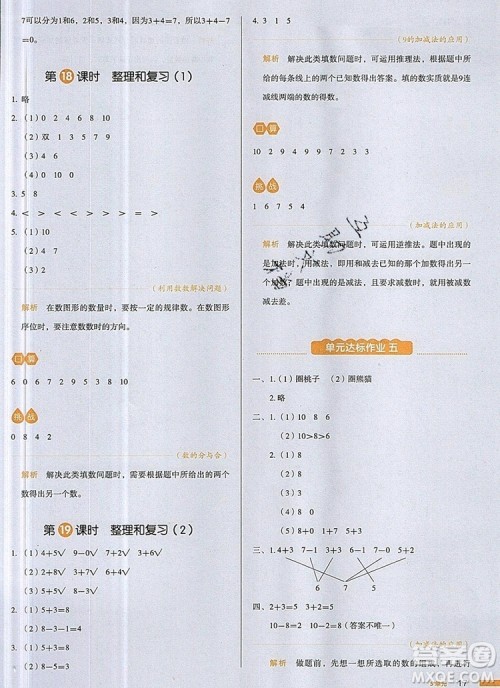 7可以分为1和6,2和5,3和4,所以3+4-7
=0。
第18课时 整理和复习(1)
1. 略
2.(1)10
(2)双 1 3 5 7 9
(3)4
(4)0
3. 5 8
4. < < > = > < > >
5.(1)10 8
(2)9 1 4
(3)7 3
(4)10
(利用数数解决问题)
解析 在数图形的数量时,要按一定的规律数。在数图形
序位时,要注意数数时的方向。
口算
6 0 6 7 2 9 3 8 10 5
挑战
0 8 4 2
(数的分与合)
解析 解决此类填数问题时,可根据题中所给出的两个
数得出另一个数。
第19课时 整理和复习(2)
1.(1)4+5√ 9-0√ 7+2√ 3+6√
(2)2+3√ 4+1√ 8-3√ 9-4√
2.(1)5+3=8
(2)8-3=5
(3)9-3-3=3
3.(1)5+2=7
(2)3+2=5
4. 3 1 5
(9的加减法的应用)
解析 解决此类填数问题时,可运用推理法,根据题中所
给的每条线上的两个数即可得出答案。四个数实质就是9连
减线两端的数的得数。
口算
10 2 9 4 9 9 7 2 3 3
挑战
1 6 7 5 4
(加减法的应用)
解析 解决此类填数问题时,可运用逆推法。题中出现的
是加法时,用减法,即用和减去已知数就可以了;题中出现
的是减法时,要求减数,就用被减数减去差。
单元达标作业 五
一、1.(1)圈桃子 (2)圈熊猫
2. 略
二、1.(1)10 8 6
(2)10>8>6
2.(1)7
(2)3
(3)6
(4)1
三、1. 4+3 7-1 5-0 7-2 3+3 5+2
5 6 7
四、2+3=5 3+2=5
10-2=8 10-8=2(答案不唯一)
(加减法的应用)
解析 做题前,先想一想所选取的数的组成,再进行